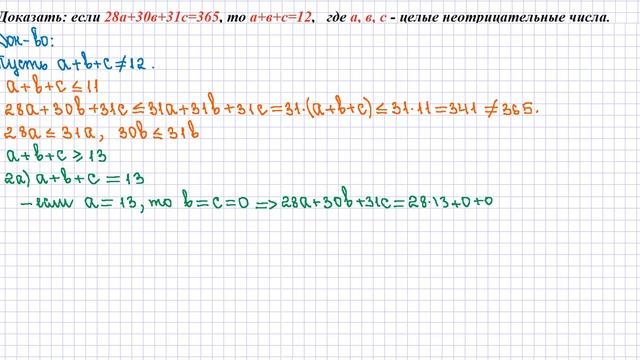 Доказать: если 28а+30в+31с=365, то а+в+с=12, где а, в, с - целые неотрицательные числа.
Док-во:
Пусть a+b+c≠12.
a+b+c≤11
28a+30b+31c≤31a+31b+31c=31·(a+b+c)≤31·11=341≠365.
28a≤31a, 30b≤31b
a+b+c≥13
2a) a+b+c=13
-если a=13, то b=c=0 => 28a+30b+31c=28·13+0+0